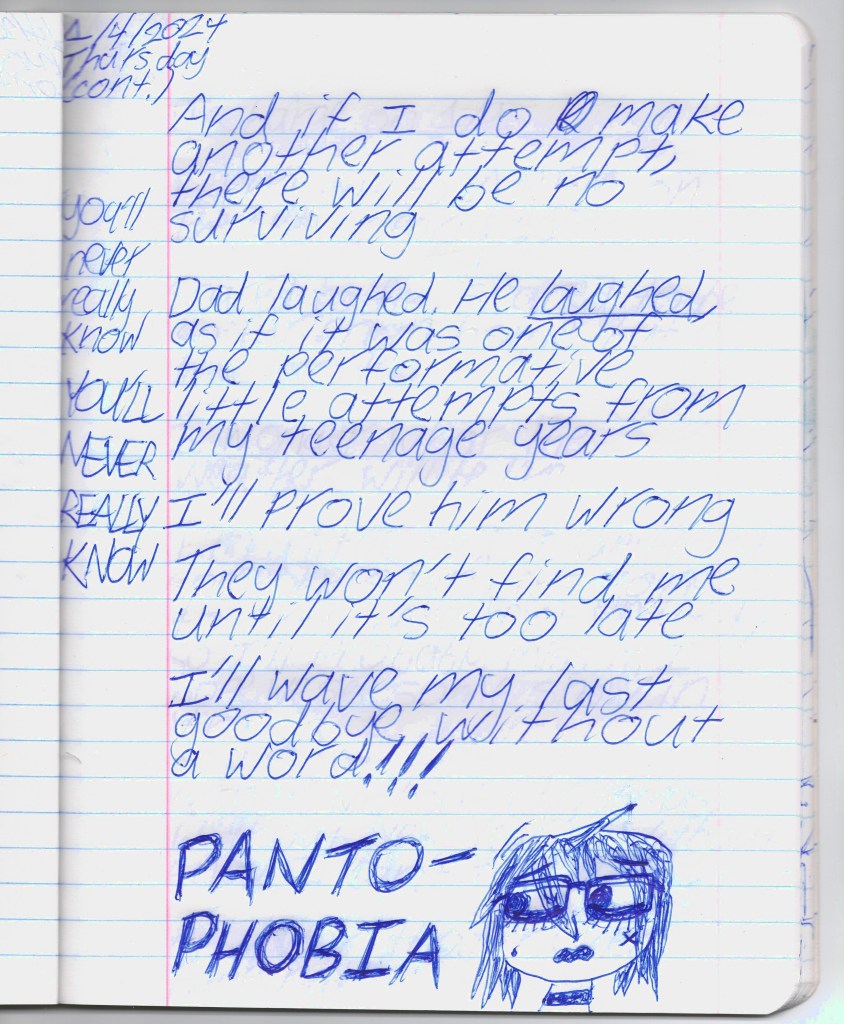 1/4/2024
Thursday
(cont.)
And if I do make
another attempt,
there will be no
surviving
you'll
never
really
know
YOU'LL
NEVER
REALLY
KNOW
Dad laughed. He laughed,
as if it was one of
the performative
little attempts from
my teenage years
I'll prove him wrong
They won't find me
until it's too late
I'll wave my last
goodbye without
a word!!!
PANTO-
PHOBIA